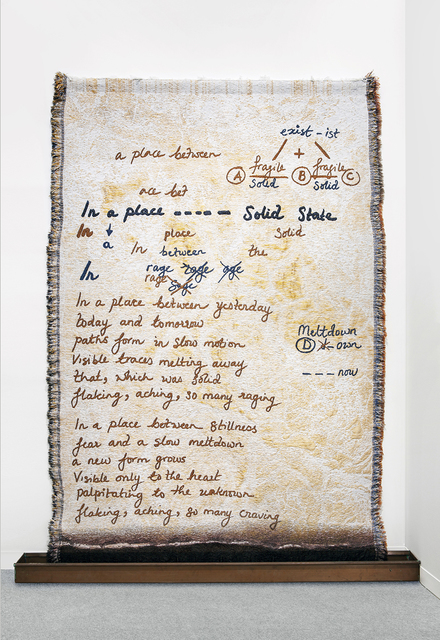 exist-ist
a place between
+
fragile fragile
A solid B solid C
ace bet
In a place ----- Solid State
In ↓ place Solid
a In between the
In rage rage age
rage Sage
In a place between yesterday
today and tomorrow
paths form in slow motion
Visible traces melting away
that, which was solid
flaking, aching, so many raging
Meltdown
D own
--- now
In a place between Stillness
fear and a slow meltdown
a new form grows
Visible only to the heart
palpitating to the unknown
flaking, aching, so many craving